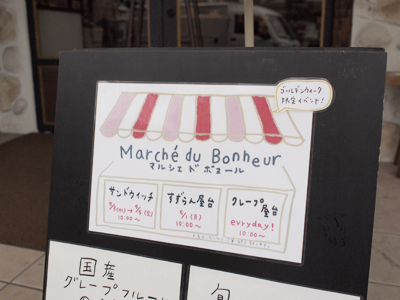 ゴールデンウィーク
限定イベント!
Marché du Bonheur
マルシェドボヌール
サンドウィッチ
10:00～
すずらん屋台
5/1(月)
10:00～
クレープ屋台
evryday!
10:00～
国産
グレープフルーツ
旬